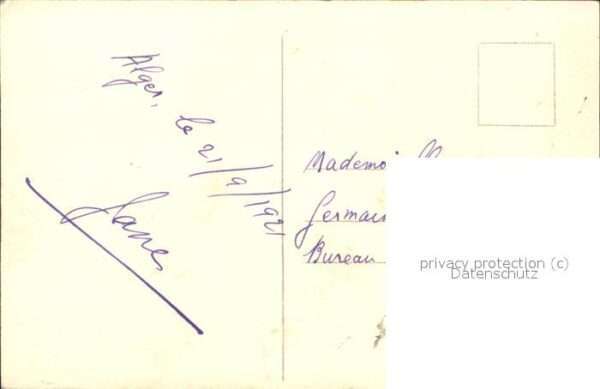 Alger, le 21/9/1921
Mademoi
Germain
Bureau
privacy protection (c)
Datenschutz